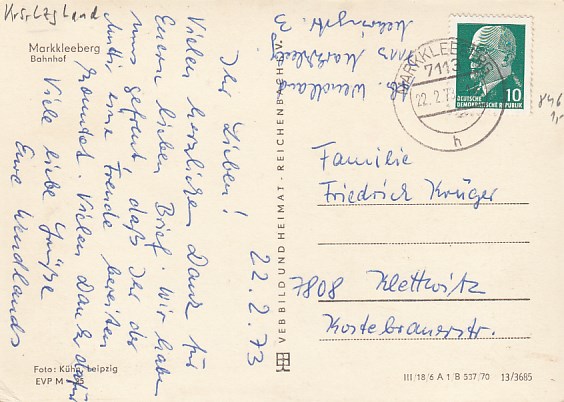 Markkleeberg
Bahnhof
22. 2. 73
Ihr Lieben!
Vielen herzlichen Dank für
Euern lieben Brief. Wir haben
uns gefreut, daß Ihr der
Mutti eine Freude bereiten
konntet. Vielen Dank dafür
Viele liebe Grüße
Eure Wendlands
Foto: Kühn, Leipzig
EVP M
VEB BILD UND HEIMAT · REICHENBACH
Wendland
7113 Markkleeberg
3
MARKKLEEBERG
7113
22. 2. 73
h
DEUTSCHE
DEMOKRATISCHE REPUBLIK
10
846
1,-
Familie
Friedrich Krüger
7808 Klettwitz
Kostebrauerstr.
III/18/6 A 1 B 537/70 13/3685